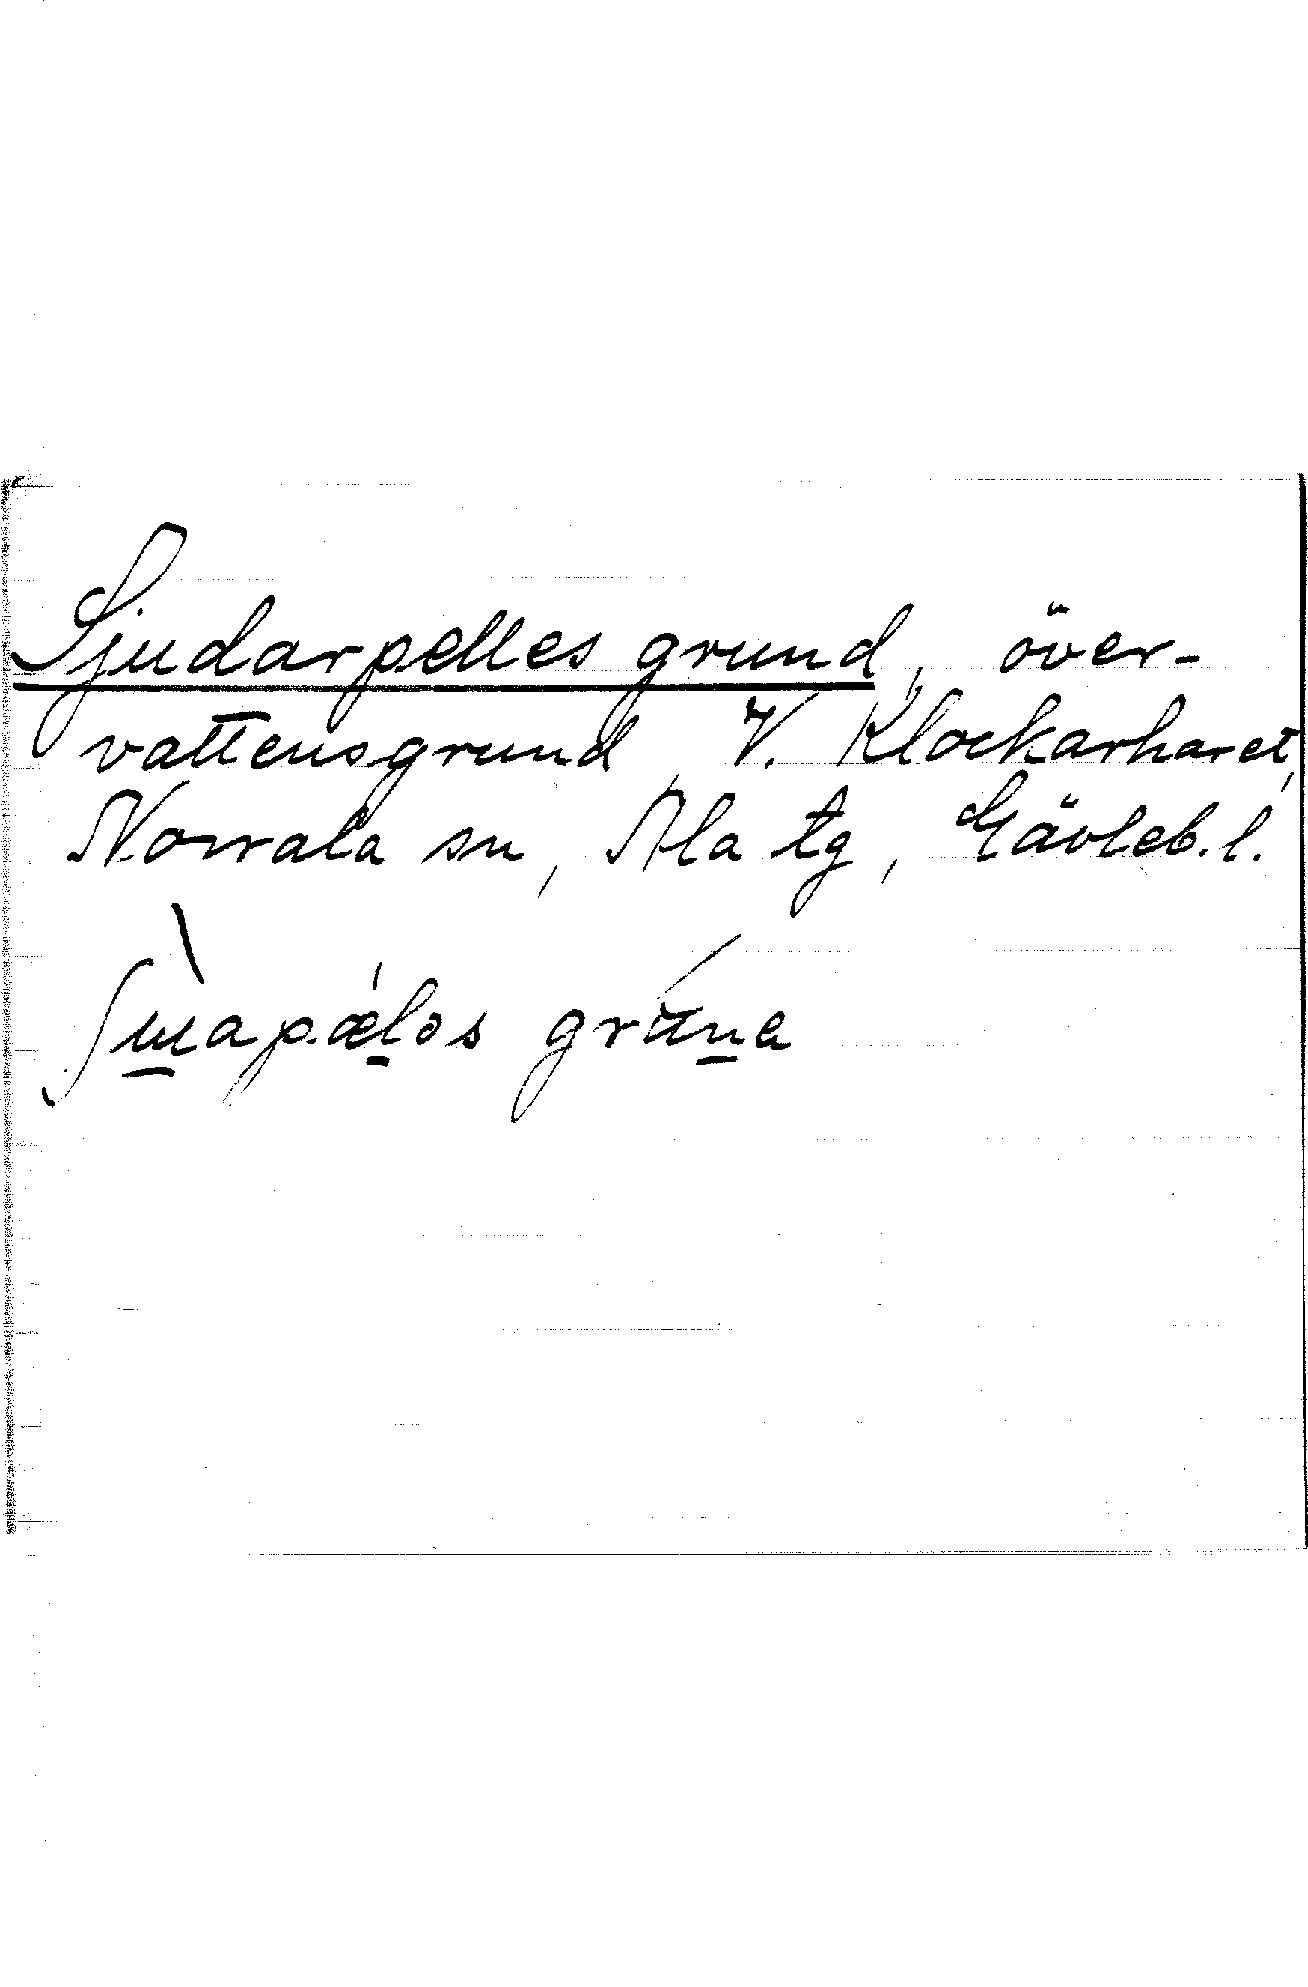 Sjudarpelles grund, över-
vattensgrund, V. Klockarharet,
Norrala sn, Ala tg, Gävleb. l.
grúna